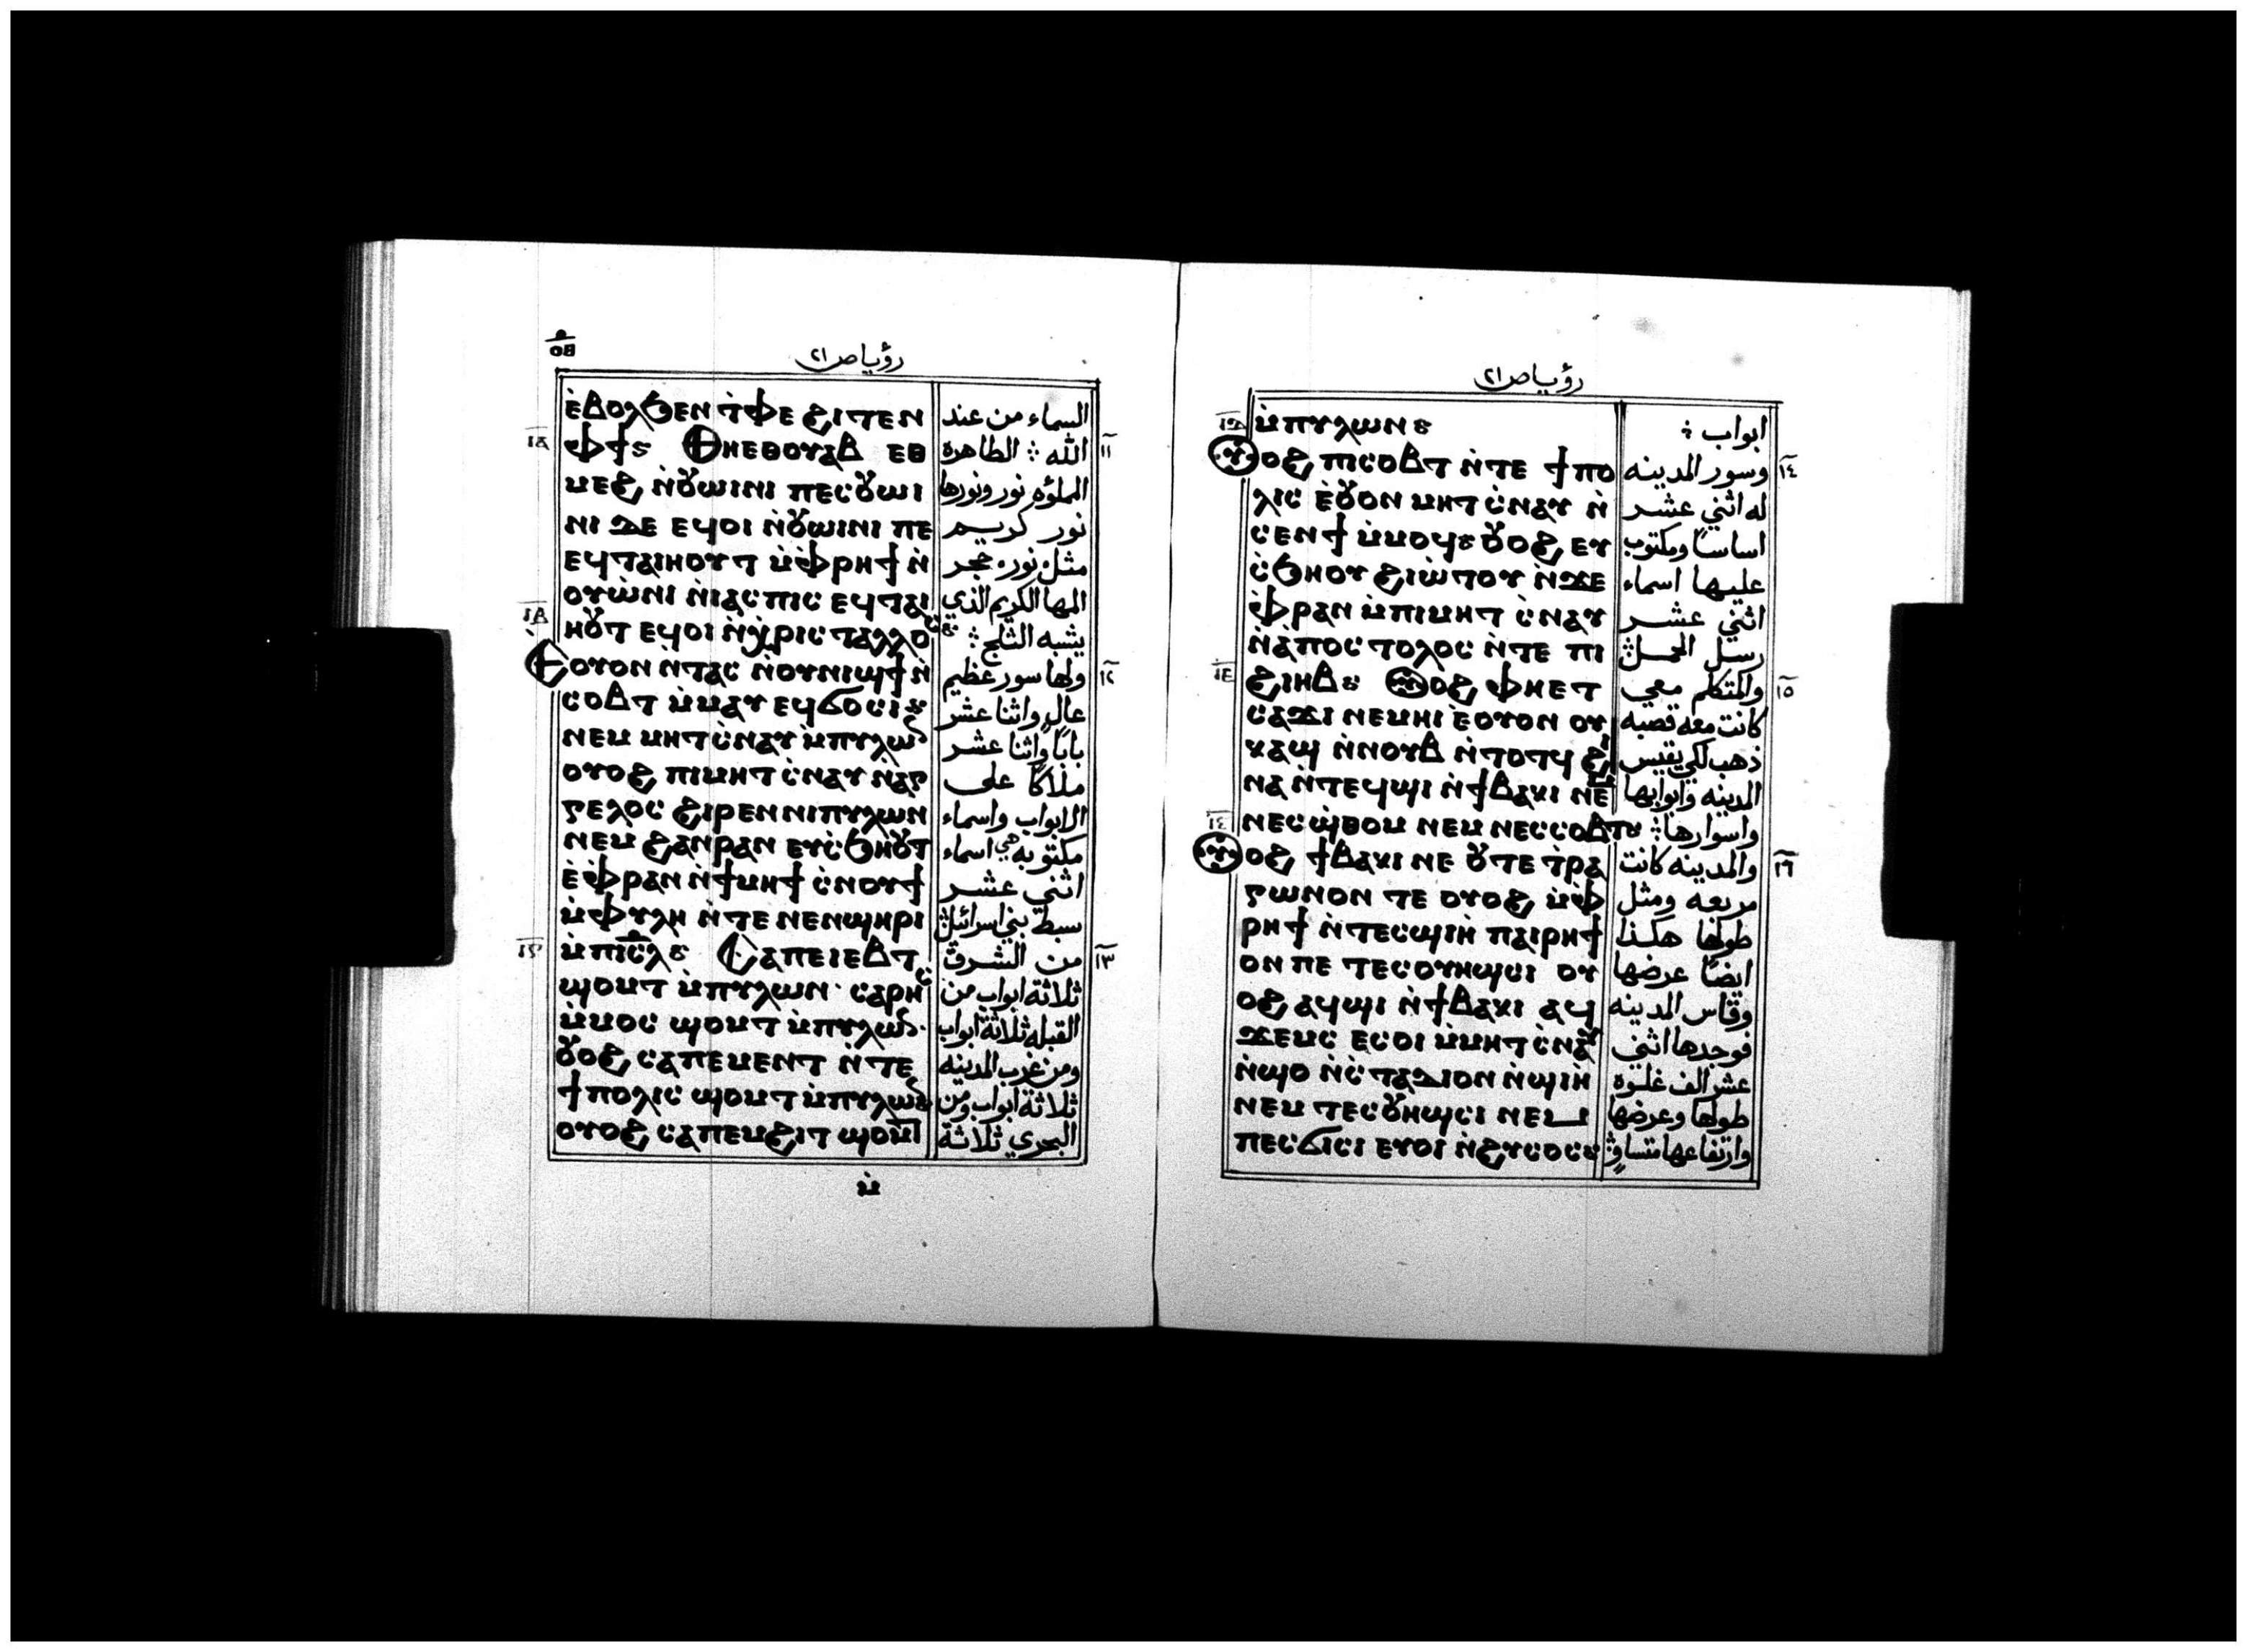 رؤيا ص ٢١
ⲉ̀ⲃⲟⲗϧⲉⲛ ⲧ̀ⲫⲉ ϩⲓⲧⲉⲛ
ⲓⲁ ⲫϯ: ⲑⲏⲉⲑⲟⲩⲁⲃ ⲉⲑ
ⲙⲉϩ ⲛ̀ⲟⲩⲱⲓⲛⲓ ⲡⲉⲥⲟⲩⲱⲓ
ⲛⲓ ϫⲉ ⲉϥⲟⲓ ⲛ̀ⲟⲩⲱⲓⲛⲓ ⲡⲉ
ⲉϥⲧⲁⲓⲏⲟⲩⲧ ⲙ̀ⲫⲣⲏϯ ⲛ̀
ⲟⲩⲱ̀ⲛⲓ ⲛ̀ⲓⲁⲥⲡⲓⲥ ⲉϥⲧⲁⲓ
ⲏⲟⲩⲧ ⲉϥⲟⲓ ⲛ̀ⲭⲣⲓⲥⲧⲁⲗⲗⲟⲥ:
ⲓⲃ ⲉⲟⲩⲟⲛ ⲛ̀ⲧⲁⲥ ⲛ̀ⲟⲩⲛⲓϣϯ ⲛ̀
ⲥⲟⲃⲧ ⲙ̀ⲙⲁⲩ ⲉϥϭⲟⲥⲓ
ⲛⲉⲙ ⲙⲏⲧ ⲥ̀ⲛⲁⲩ ⲙ̀ⲡⲩⲗⲱⲛ
ⲟⲩⲟϩ ⲡⲓⲙⲏⲧ ⲥ̀ⲛⲁⲩ ⲛ̀ⲁⲅ
ⲅⲉⲗⲟⲥ ϩⲓⲣⲉⲛ ⲛⲓⲡⲩⲗⲱⲛ
ⲛⲉⲙ ϩⲁⲛⲣⲁⲛ ⲉⲩⲥ̀ϧⲏⲟⲩⲧ
ⲉ̀ⲫⲣⲁⲛ ⲛ̀ϯⲙⲏϯ ⲥ̀ⲛⲟⲩϯ
ⲙ̀ⲫⲩⲗⲏ ⲛ̀ⲧⲉ ⲛⲉⲛϣⲏⲣⲓ
ⲓⲅ ⲙ̀ⲡⲓⲥⲗ: ⲥⲁⲡⲉⲓⲉⲃⲧ
ϣⲟⲙⲧ ⲙ̀ⲡⲩⲗⲱⲛ ⲥⲁⲣⲏⲥ
ⲙ̀ⲙⲟⲥ ϣⲟⲙⲧ ⲙ̀ⲡⲩⲗⲱⲛ
ⲟⲩⲟϩ ⲥⲁⲡⲉⲙⲉⲛⲧ ⲛ̀ⲧⲉ
ϯⲡⲟⲗⲓⲥ ϣⲟⲙⲧ ⲙ̀ⲡⲩⲗⲱⲛ
ⲟⲩⲟϩ ⲥⲁⲡⲉⲙϩⲓⲧ ϣⲟⲙⲧ
ⲙ̀
السماء من عند
١١ الله : الطاهره
المملؤه نور ونورها
نور كريم
مثل نوره حجر
المها الكريم الذي
يشبه الثلج :
١٢ ولها سور عظيم
عالٍ واثنا عشر
بابًا واثنا عشر
ملاكًا على
الابواب واسماء
مكتوبه هي اسماء
اثني عشر
سبط بني اسرائيل
١٣ من الشرق
ثلاثة ابواب من
القبله ثلاثة ابواب
ومن غرب المدينه
ثلاثة ابواب ومن
البحري ثلاثة
رؤيا ص ٢١
ⲙ̀ⲡⲩⲗⲱⲛ:
ⲓⲇ ⲟⲩⲟϩ ⲡⲓⲥⲟⲃⲧ ⲛ̀ⲧⲉ ϯⲡⲟ
ⲗⲓⲥ ⲉ̀ⲟⲩⲟⲛ ⲙⲏⲧ ⲥ̀ⲛⲁⲩ ⲛ̀
ⲥⲉⲛϯ ⲙ̀ⲙⲟϥ: ⲟⲩⲟϩ ⲉⲩ
ⲥ̀ϧⲏⲟⲩ ϩⲓⲱ̀ⲧⲟⲩ ⲛ̀ϫⲉ
ⲫ̀ⲣⲁⲛ ⲙ̀ⲡⲓⲙⲏⲧ ⲥ̀ⲛⲁⲩ
ⲛ̀ⲁ̀ⲡⲟⲥⲧⲟⲗⲟⲥ ⲛ̀ⲧⲉ ⲡⲓ
ⲓⲉ ϩⲓⲏⲃ: ⲟⲩⲟϩ ⲫⲏⲉⲧ
ⲥⲁϫⲓ ⲛⲉⲙⲏⲓ ⲉ̀ⲟⲩⲟⲛ ⲟⲩ
ⲕⲁϣ ⲛ̀ⲛⲟⲩⲃ ⲛ̀ⲧⲟⲧϥ ϩⲓ
ⲛⲁ ⲛ̀ⲧⲉϥϣⲓ ⲛ̀ϯⲃⲁⲕⲓ ⲛⲉⲙ
ⲛⲉⲥϣ̀ⲑⲟⲙ ⲛⲉⲙ ⲛⲉⲥⲥⲟⲃⲧ:
ⲓⲋ ⲟⲩⲟϩ ϯⲃⲁⲕⲓ ⲛⲉ ⲟⲩⲧⲉⲧⲣⲁ
ⲅⲱⲛⲟⲛ ⲧⲉ ⲟⲩⲟϩ ⲙ̀ⲫ
ⲣⲏϯ ⲛ̀ⲧⲉⲥϣⲓⲏ ⲡⲁⲓⲣⲏϯ
ⲟⲛ ⲡⲉ ⲧⲉⲥⲟⲩⲏϣⲥⲓ ⲟⲩ
ⲟϩ ⲁϥϣⲓ ⲛ̀ϯⲃⲁⲕⲓ ⲁϥ
ϫⲉⲙⲥ ⲉⲥⲟⲓ ⲙ̀ⲙⲏⲧ ⲥ̀ⲛⲁⲩ
ⲛ̀ϣⲟ ⲛ̀ⲥ̀ⲧⲁⲇⲓⲟⲛ ⲛ̀ϣⲓⲏ
ⲛⲉⲙ ⲧⲉⲥⲟⲩⲏϣⲥⲓ ⲛⲉⲙ
ⲡⲉⲥϭⲓⲥⲓ ⲉⲩⲟⲓ ⲛ̀ϩⲩⲥⲟⲥ:
ابواب :
١٤ وسور المدينه
له اثني عشر
اساسًا ومكتوب
عليها اسماء
اثني عشر
رسل الحمل
١٥ والمتكلم معي
كانت معه قصبه
ذهب لكي يقيس
المدينه وابوابها
واسوارها :
١٦ والمدينه كانت
مربعه ومثل
طولها هكذا
ايضًا عرضها
وقاس المدينه
فوجدها اثني
عشر الف غلوه
طولها وعرضها
وارتفاعها متساوٍ